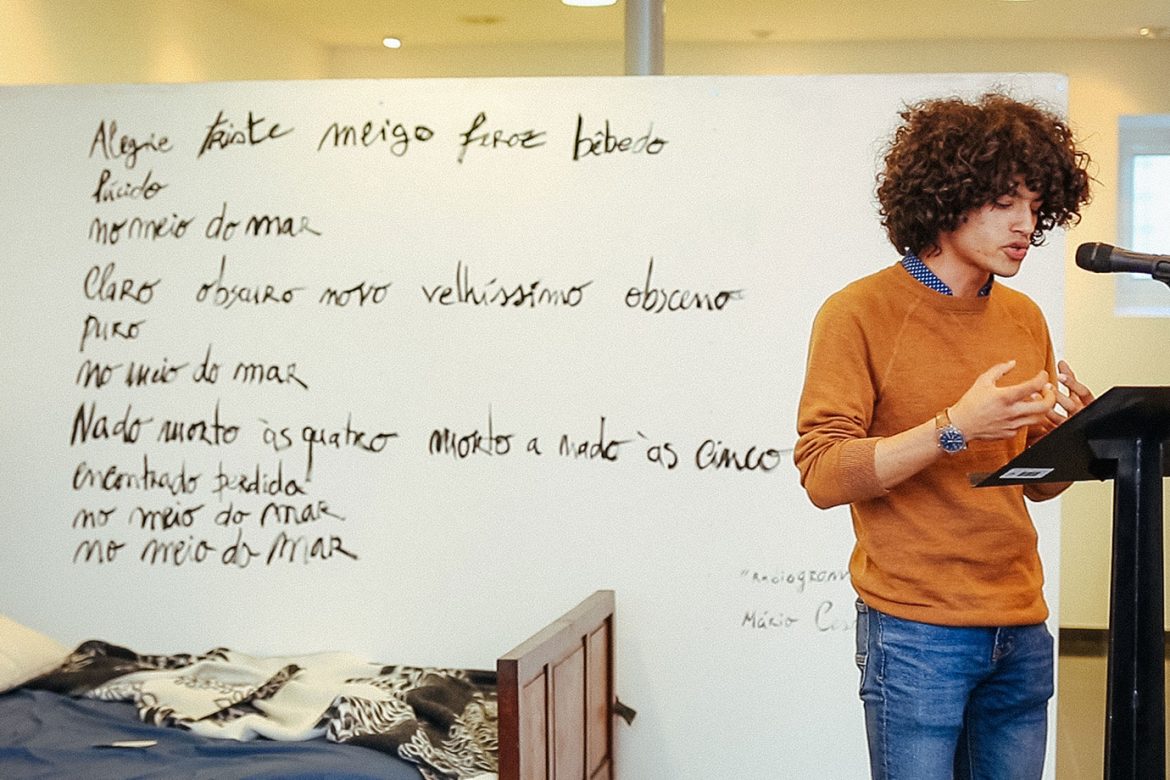 Alegre triste meigo feroz bêbedo
lúcido
no meio do mar
Claro obscuro novo velhíssimo obsceno
puro
no meio do mar
Nado morto às quatro morto a nado às cinco
encontrado perdida
no meio do mar
no meio do mar
Mário